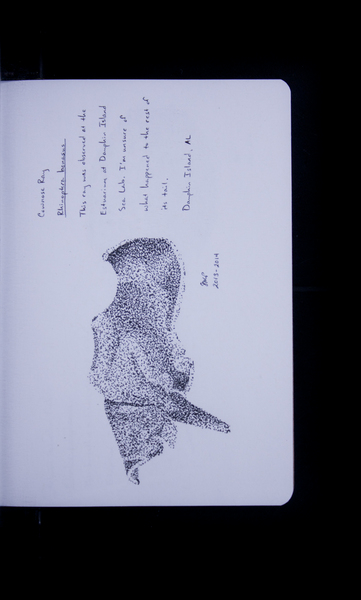 Cownose Ray
Rhinoptera bonasus
This ray was observed at the
Estuarium at Dauphin Island
Sea Lab. I'm unsure of
what happened to the rest of
its tail.
Dauphin Island, AL
2013-2014